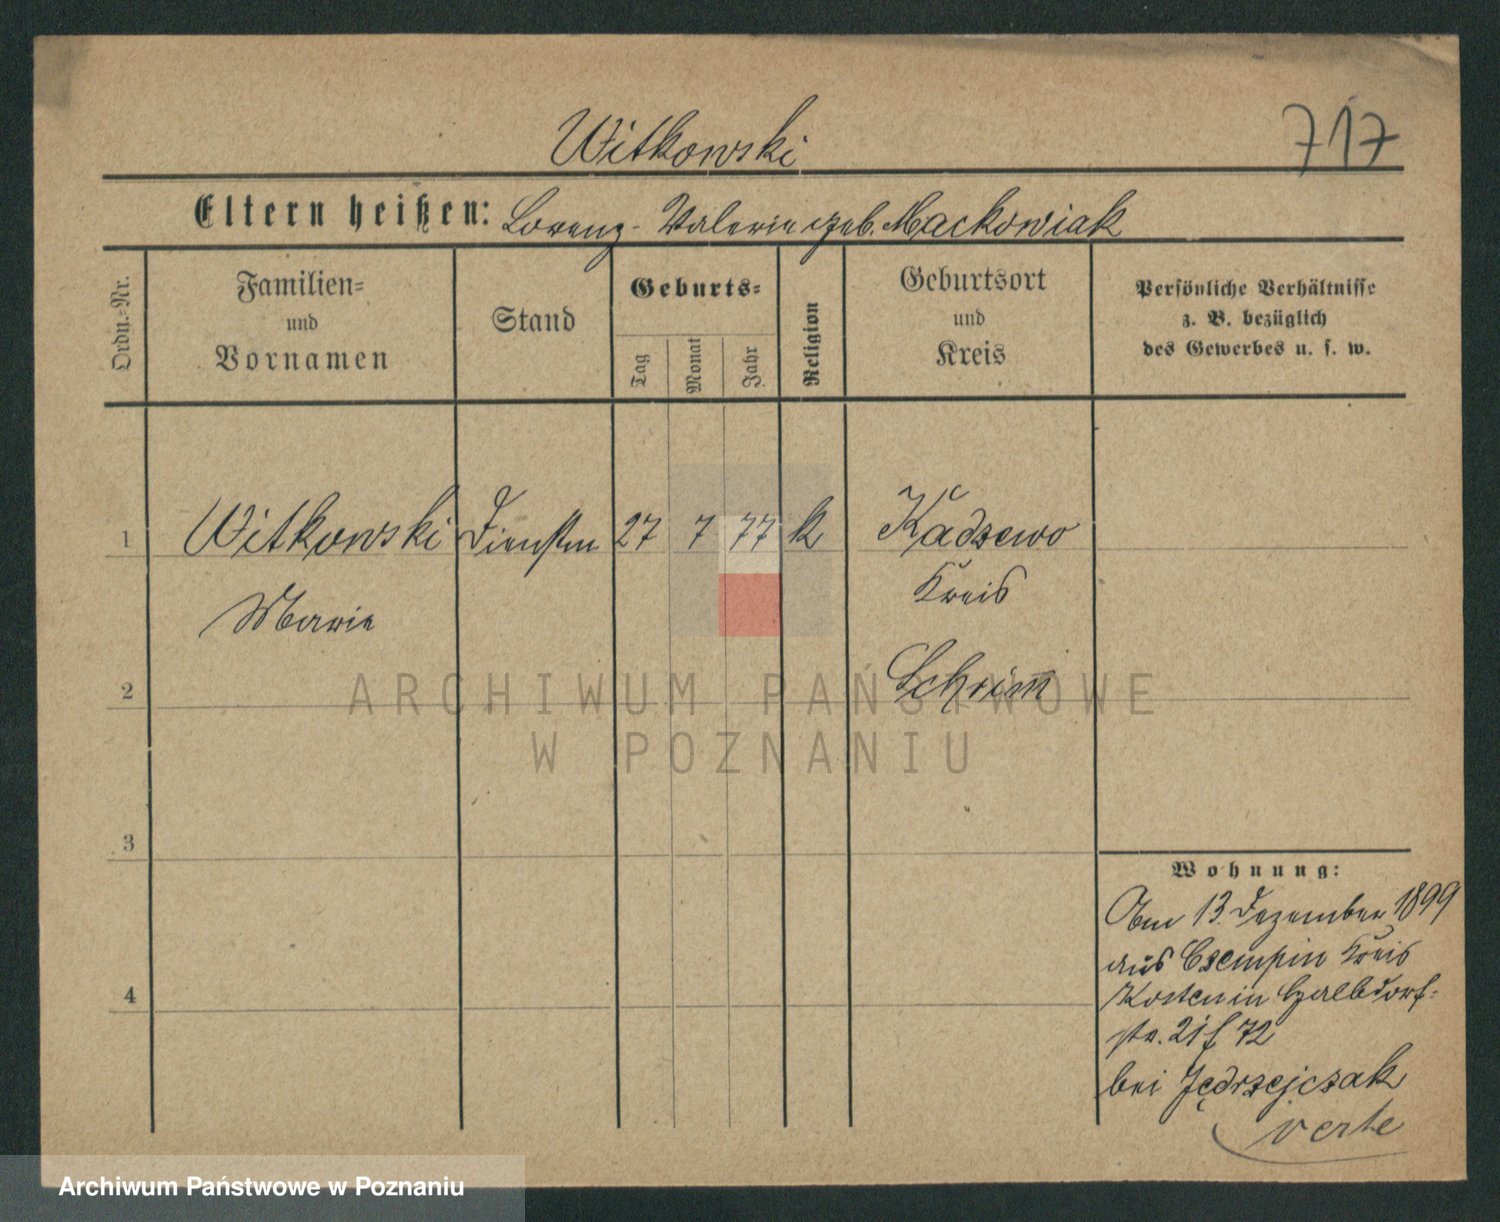 Witkowski
717
Eltern heißen: Lorenz - Valerie geb. Mackowiak
Ordn.=Nr.
Familien=
und
Vornamen
Stand
Geburts=
Tag
Monat
Jahr
Religion
Geburtsort
und
Kreis
Persönliche Verhältnisse
z. B. bezüglich
des Gewerbes u. s. w.
1 Witkowski Dienstm 27 7 77 k Kadzewo
Marie
Kreis
2
Schrim̄
ARCHIWUM PAŃSTWOWE
W POZNANIU
3
4
Wohnung:
Am 13. Dezember 1899
aus Czempin Kreis
Kosten in Halbdorf=
str.
bei Jędrzejczak
verte
Archiwum Państwowe w Poznaniu